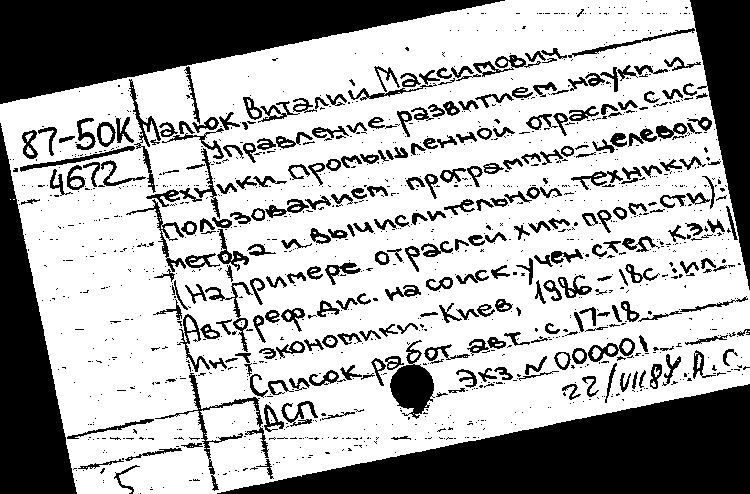 87-50К
4672
Малюк, Виталий Максимович
Управление развитием науки и
техники промышленной отрасли с ис-
пользованием программно-целевого
метода и вычислительной техники:
(На примере отраслей хим. пром-сти):
Автореф. дис. на соиск. учен. степ. к.э.н./
Ин-т экономики.-Киев, 1986.-18с.:ил.
Список работ авт. с. 17-18.
ДСП. Экз. N 000001
5